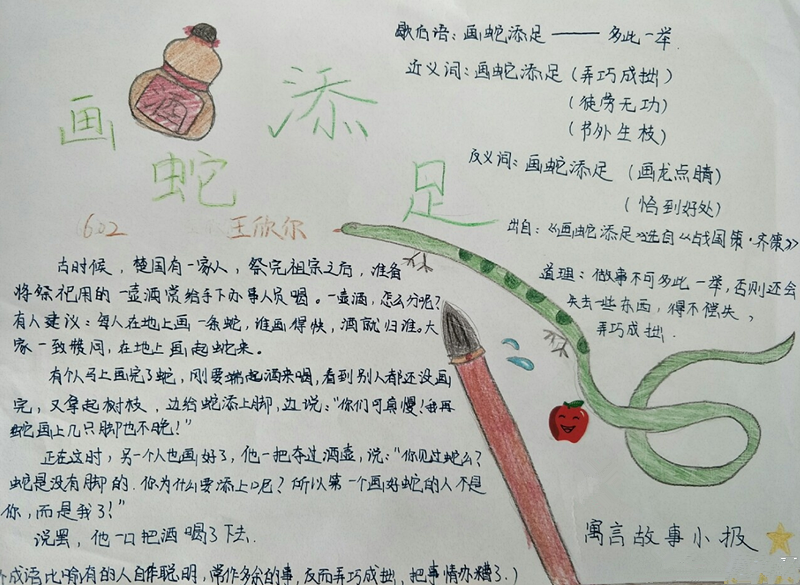 画
蛇
添
足
602 王欣尔
歇后语：画蛇添足——多此一举
近义词：画蛇添足（弄巧成拙）
（徒劳无功）
（节外生枝）
反义词：画蛇添足（画龙点睛）
（恰到好处）
出自：《画蛇添足》选自《战国策·齐策》
道理：做事不可多此一举，否则还会
失去一些东西，得不偿失，
弄巧成拙.
古时候，楚国有一家人，祭完祖宗之后，准备
将祭祀用的一壶酒赏给手下办事人员喝。一壶酒，怎么分呢？
有人建议：每人在地上画一条蛇，谁画得快，酒就归谁。大
家一致赞同，在地上画起蛇来。
有个人马上画完了蛇，刚要端起酒来喝，看到别人都还没画
完，又拿起树枝，边给蛇添上脚，边说：“你们可真慢！我再
蛇画上几只脚也不晚！”
正在这时，另一个人也画好了，他一把夺过酒壶，说：“你见过蛇么？
蛇是没有脚的.你为什么要添上呢？所以第一个画好蛇的人不是
你，而是我了！”
说罢，他一口把酒喝了下去.
成语比喻有的人自作聪明，常作多余的事，反而弄巧成拙，把事情办糟了.）
寓言故事小报